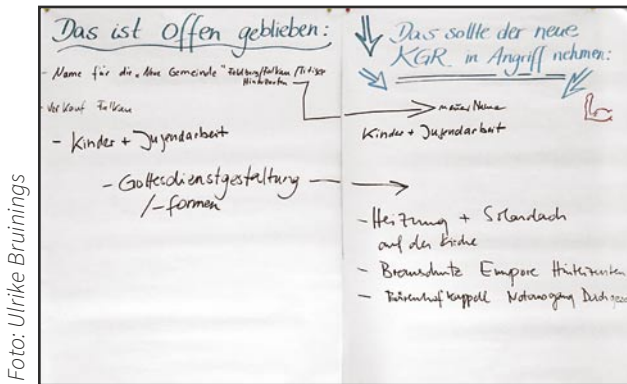 Foto: Ulrike Bruinings
Das ist Offen geblieben:
- Name für die "Neue Gemeinde" Feldberg/Falkau/Titisee
Hinterzarten
- Verkauf Falkau
- Kinder + Jugendarbeit
- Gottesdienstgestaltung
/-formen
Das sollte der neue
KGR in Angriff nehmen:
neuer Name
Kinder + Jugendarbeit
- Heizung + Solardach
auf der Kirche
- Empore Hinterzarten
- Notausgang